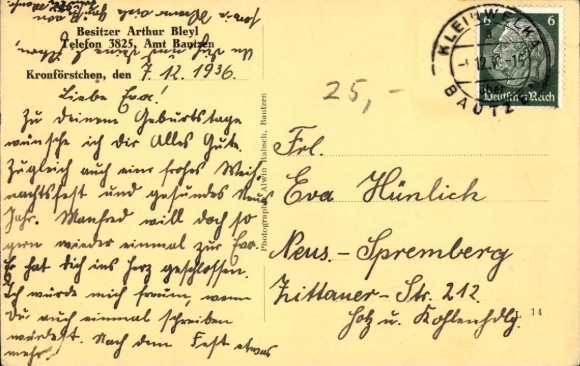 Besitzer Arthur Bleyl
Telefon 3825, Amt Bautzen
Kronförstchen, den 7.12.1936.
Liebe Eva!
Zu deinem Geburtstage
wünsche ich dir Alles Gute.
Zugleich auch ein frohes Weih-
nachtsfest und gesundes Neues
Jahr. Manfred will doch so
gern wieder einmal zur Eva.
Er hat dich ins Herz geschlossen.
Ich würde mich freuen, wenn
Du auch einmal schreiben
würdest. Nach dem Fest etwas
mehr.
Photograph Alwin Rabsch, Bautzen
25,-
KLEINWELKA
BAUTZ
6 6
Deutsches Reich
Frl.
Eva Hünlich
Neus.-Spremberg
Zittauer-Str. 212.
Holz u. Kohlenhdlg.
14